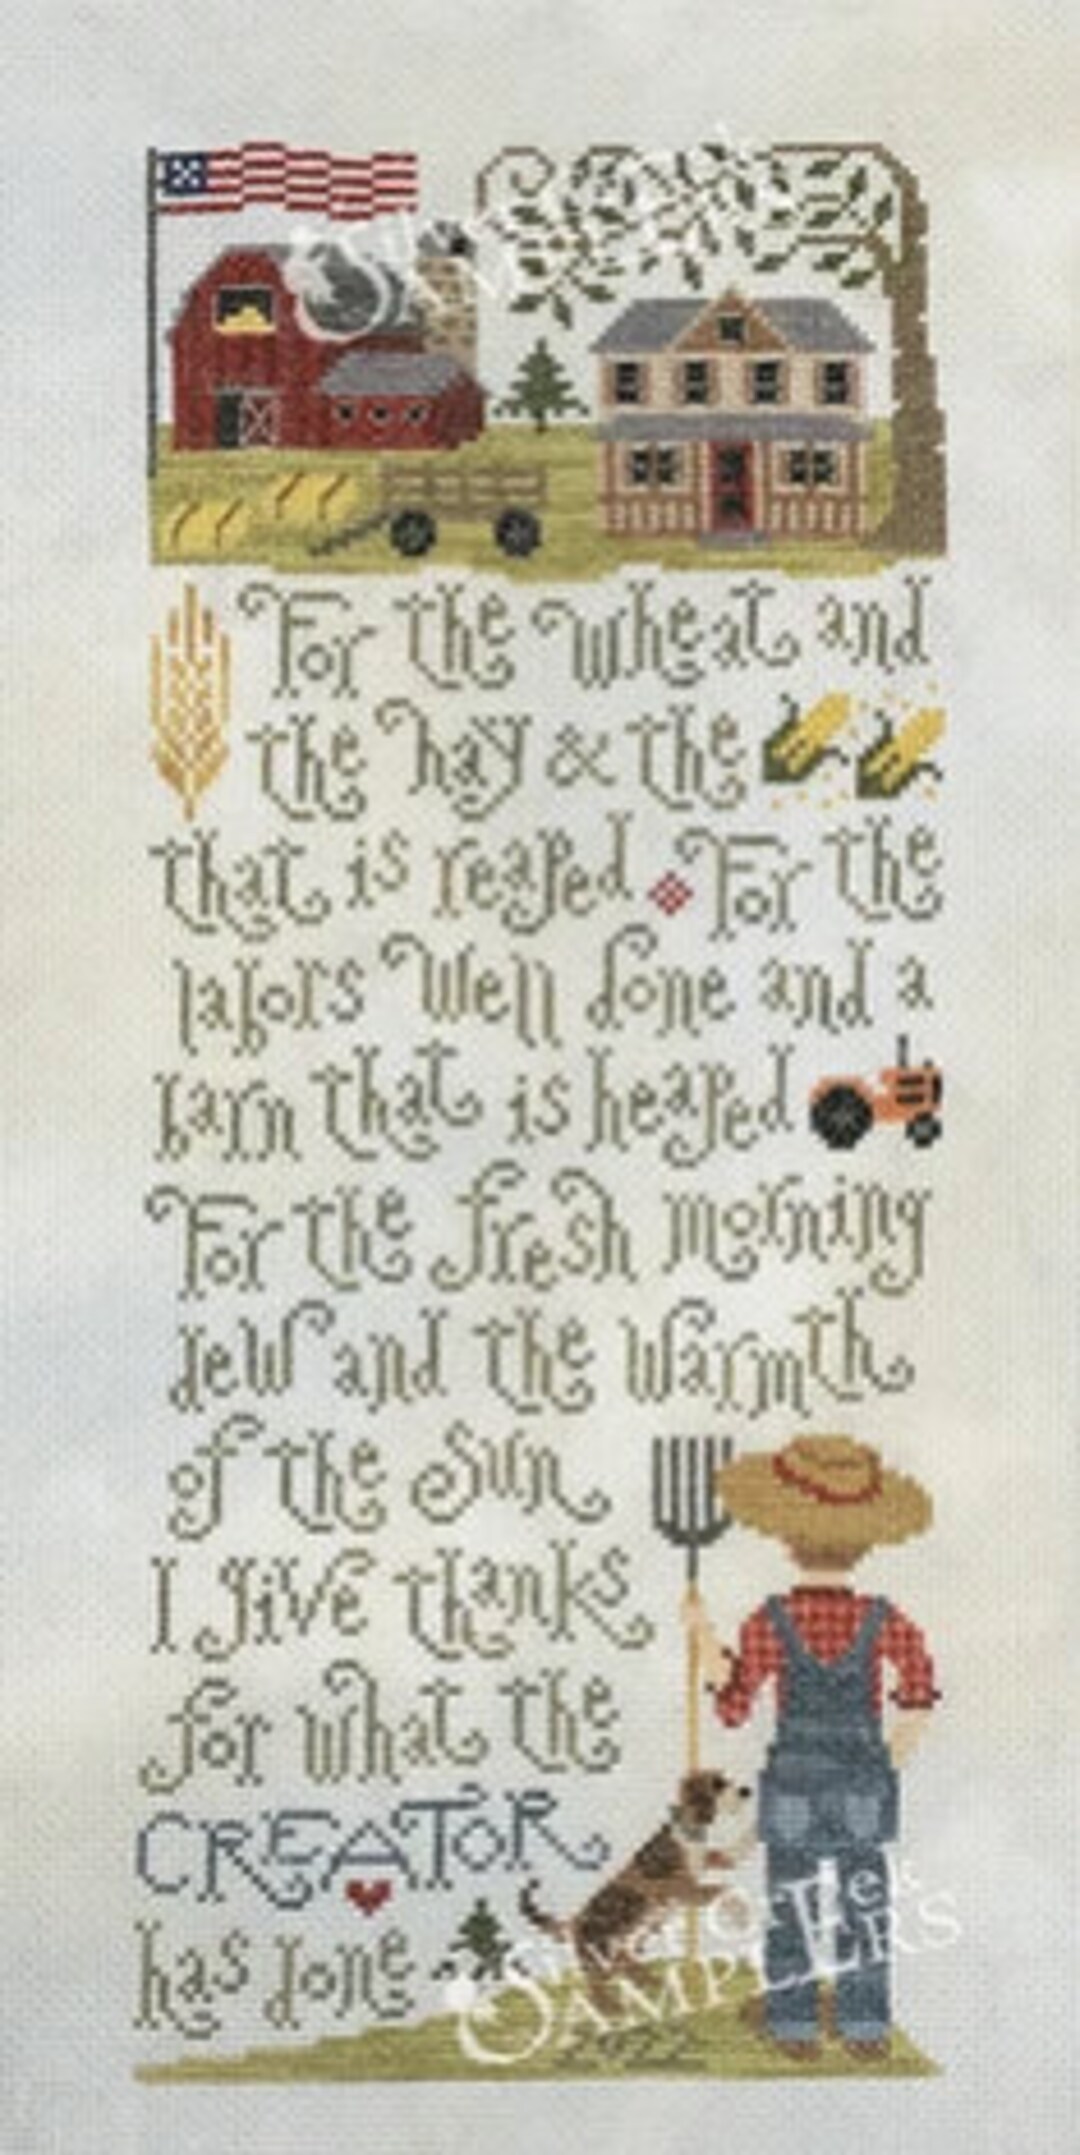 For the wheat and
the hay & the
that is reaped For the
labors well done and a
barn that is heaped
For the fresh morning
dew and the warmth
of the Sun
I give thanks
for what the
CREATOR
has done
Silver Creek
SAMPLERS
2022